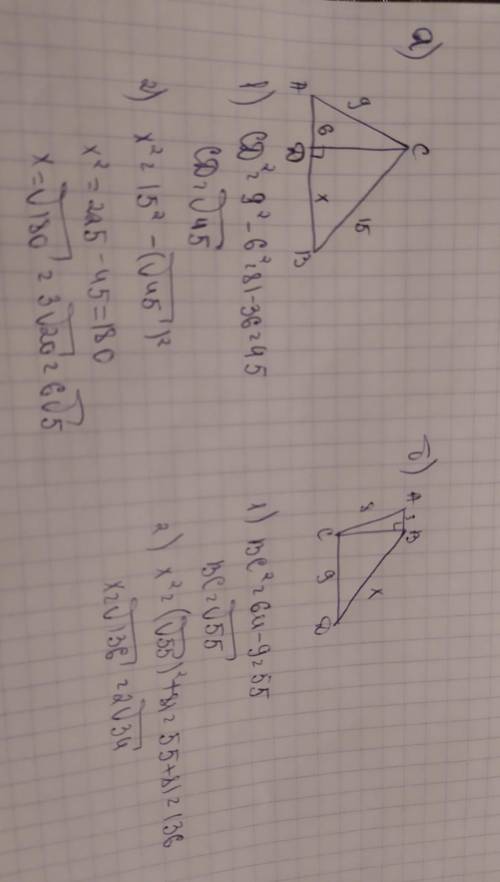 а)
A
9
6
D
C
x
15
B
1) CD² = 9² - 6² = 81 - 36 = 45
CD = √45
2) x² = 15² - (√45)²
x² = 225 - 45 = 180
x = √180 = 3√20 = 6√5
б)
A
3
B
8
C
9
x
D
1) BC² = 64 - 9 = 55
BC = √55
2) x² = (√55)² + 81 = 55 + 81 = 136
x = √136 = 2√34